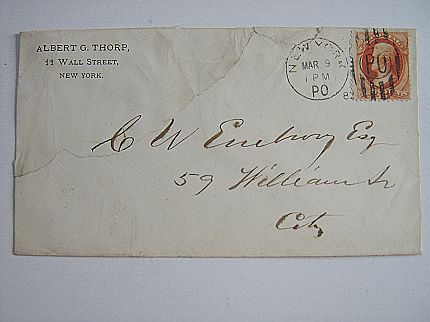 ALBERT G. THORP,
11 WALL STREET,
NEW YORK.
NEW YORK
MAR 9
1 PM
PO
82
PO
C W Emebury Esq
59 William St
City